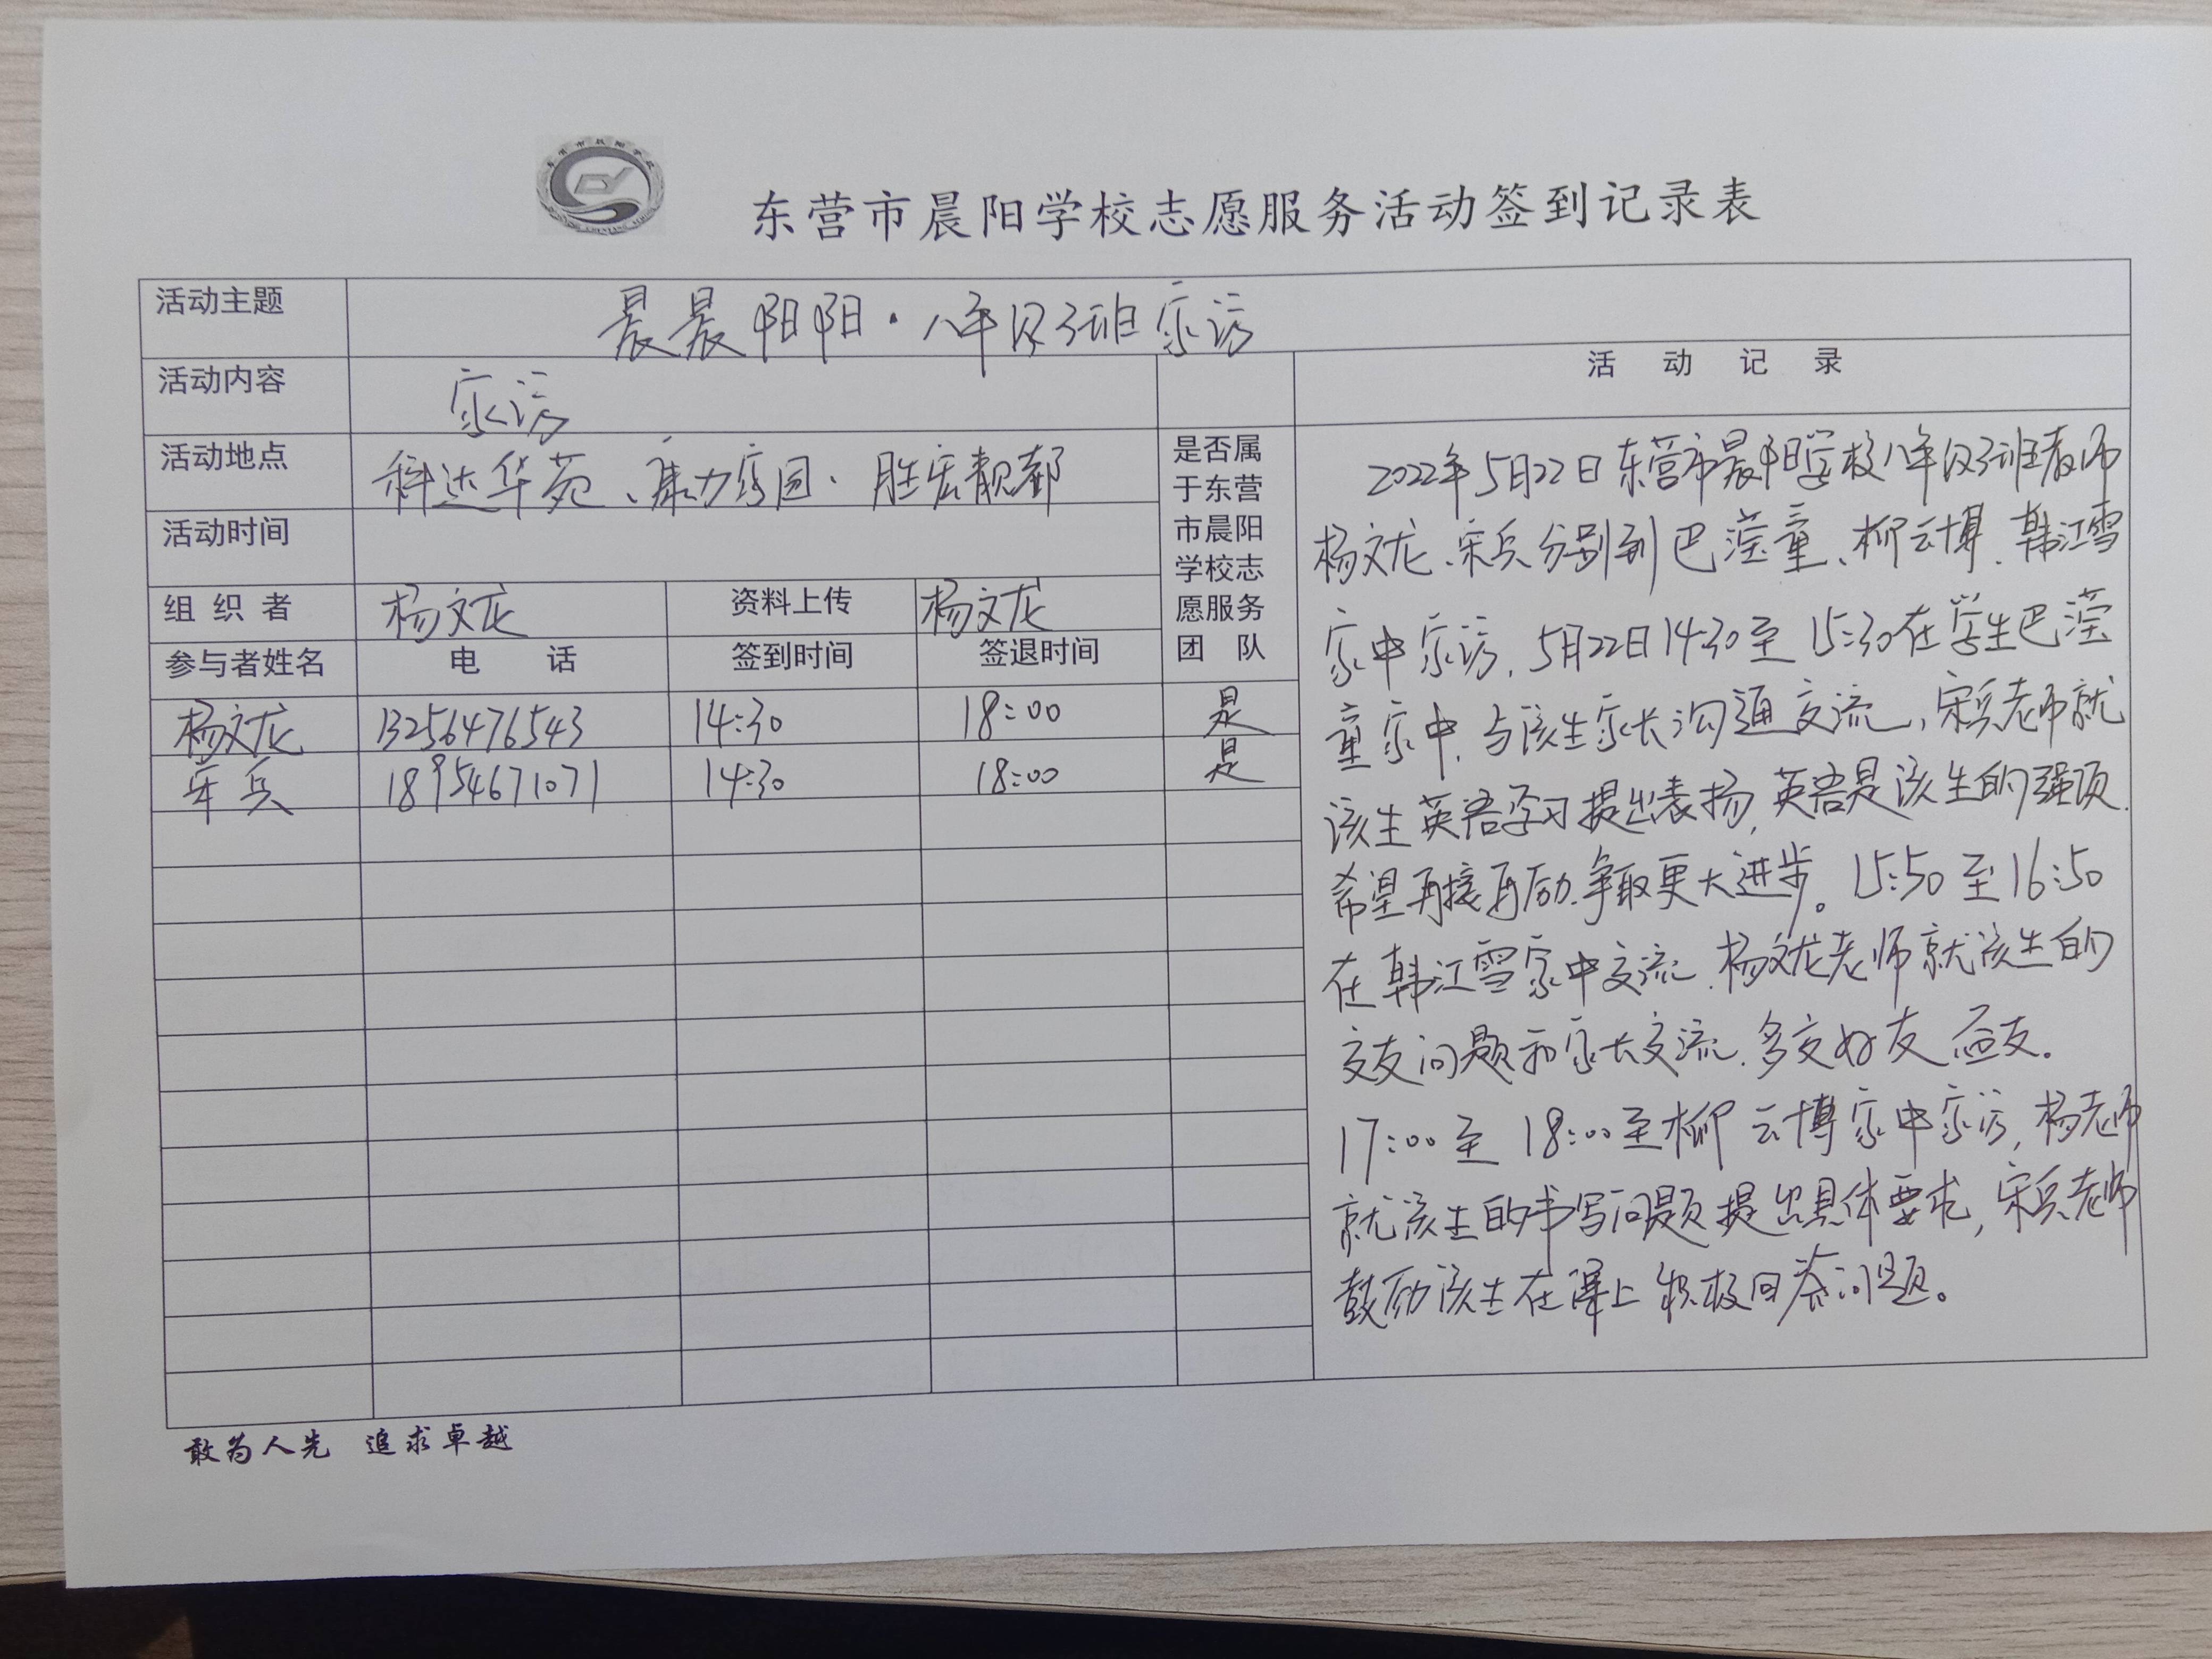 东营市晨阳学校志愿服务活动签到记录表
活动主题 晨晨阳阳·八年级3班家访
活动内容 家访
活动地点 科达华苑、康力家园、胜宏靓都
活动时间
组织者 杨文龙 资料上传 杨文龙
参与者姓名 电话 签到时间 签退时间
是否属
于东营
市晨阳
学校志
愿服务
团队
杨文龙 13256476543 14:30 18:00 是
宋兵 18954671071 14:30 18:00 是
活动记录
2022年5月22日东营市晨阳学校八年级3班教师
杨文龙、宋兵分别到巴滢童、柳云博、韩江雪
家中家访,5月22日14:30至15:30在学生巴滢
童家中,与该生家长沟通交流,宋兵老师就
该生英语学习提出表扬,英语是该生的强项.
希望再接再励.争取更大进步。15:50至16:50
在韩江雪家中交流.杨文龙老师就该生的
交友问题和家长交流.多交好友益友。
17:00至18:00至柳云博家中家访,杨老师
就该生的书写问题提出具体要求,宋兵老师
鼓励该生在课上积极回答问题。
敢为人先 追求卓越